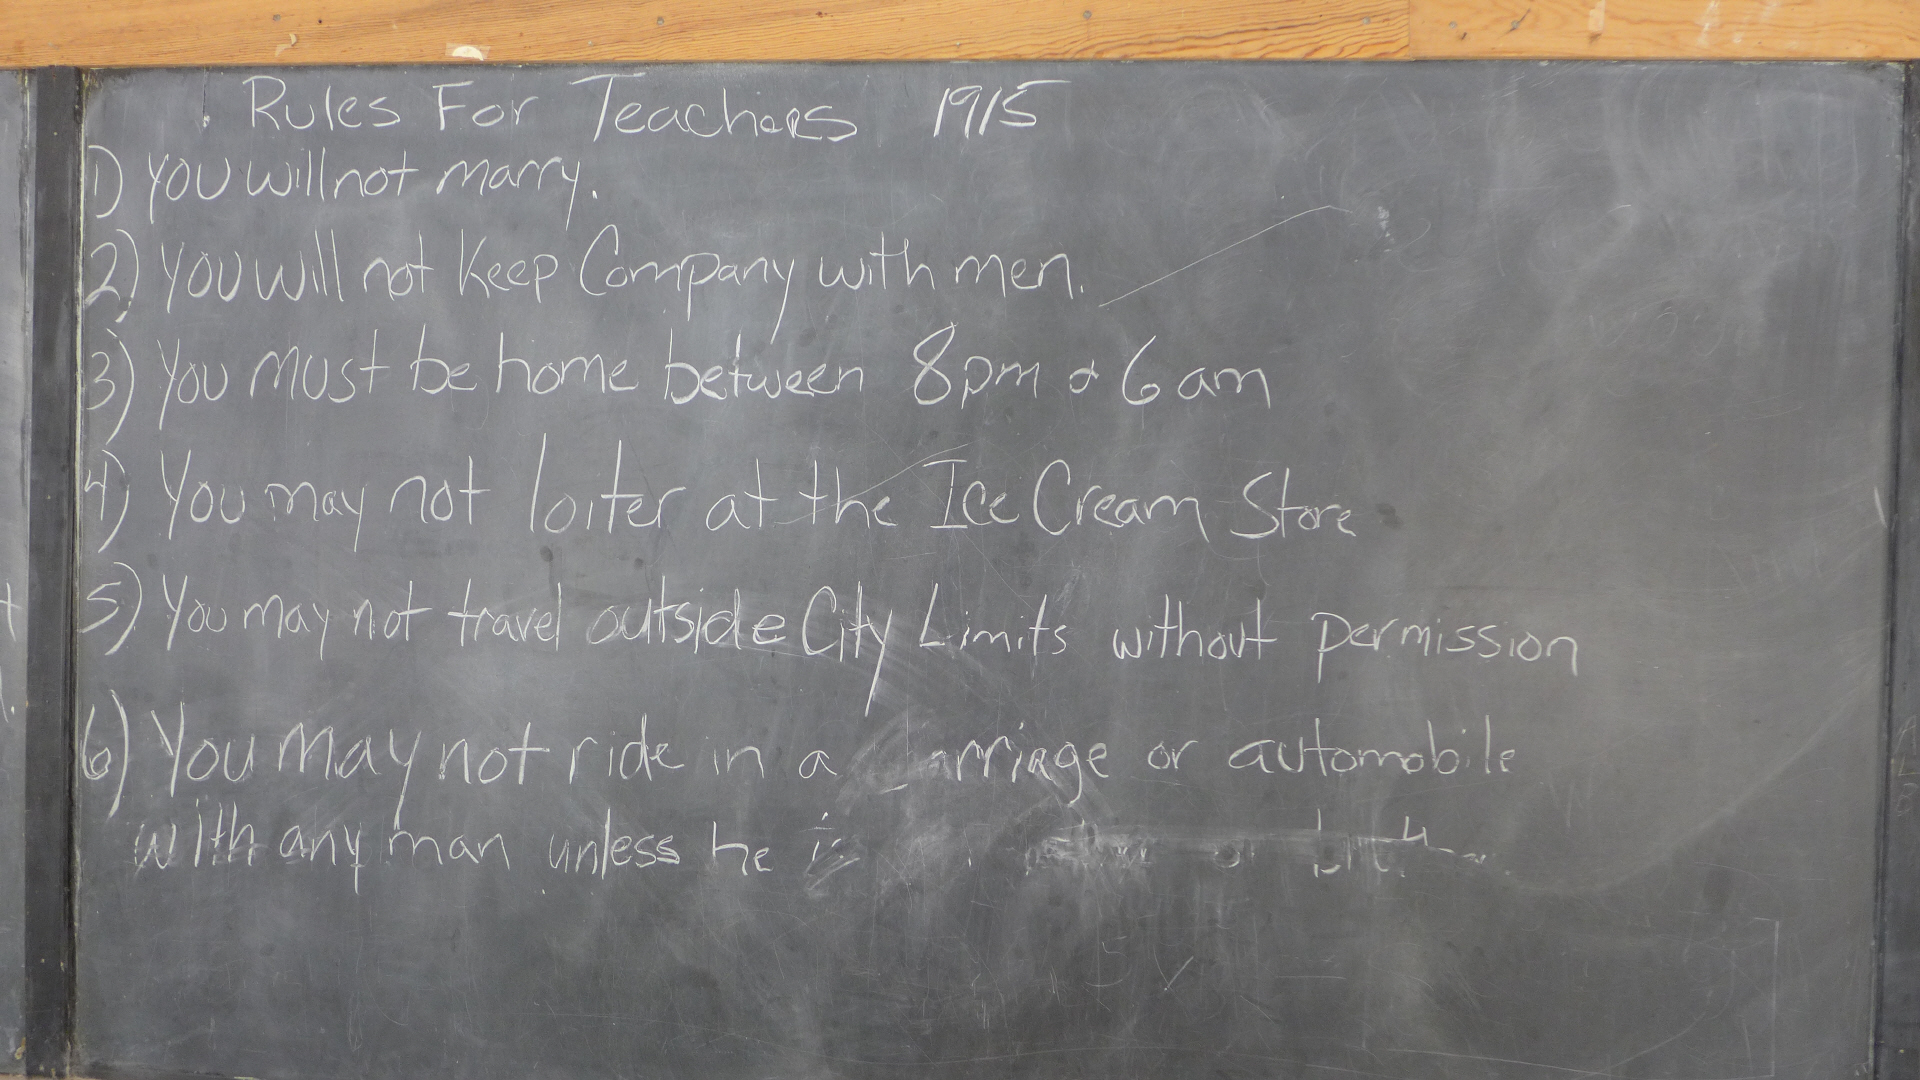 Rules For Teachers 1915
1) You will not marry.
2) You will not Keep Company with men.
3) You must be home between 8pm & 6am
4) You may not loiter at the Ice Cream Store
5) You may not travel outside City Limits without permission
6) You may not ride in a carriage or automobile
with any man unless he is or